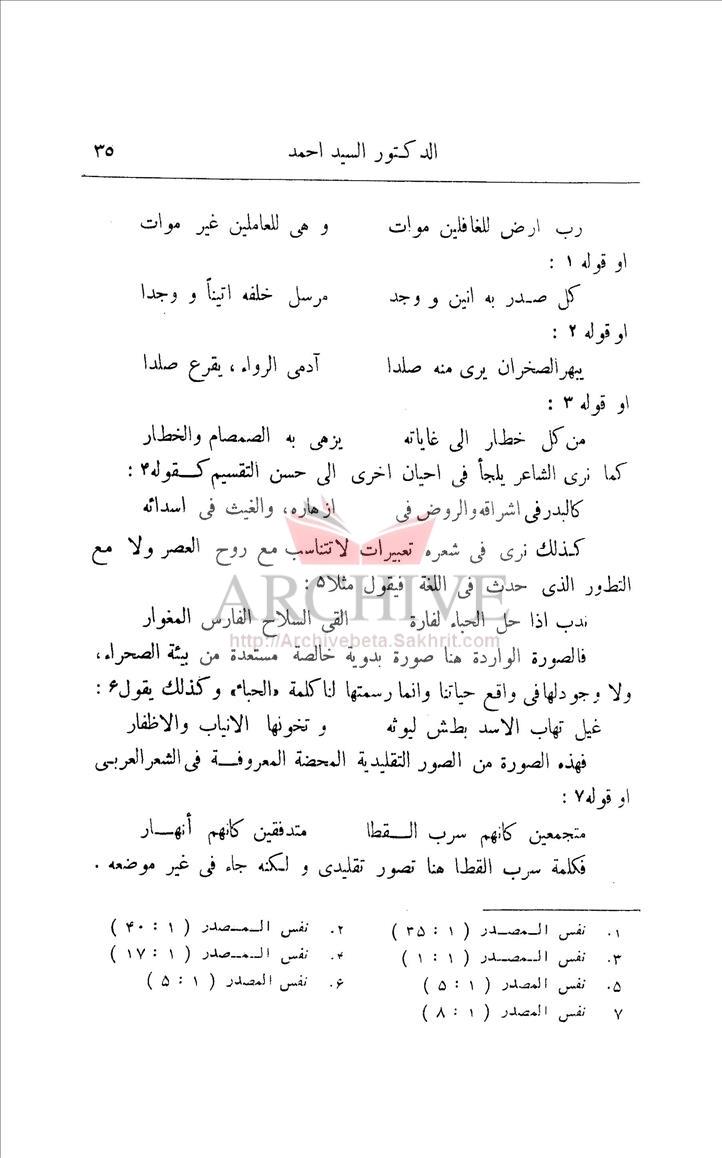 الدكتور السيد احمد ٣٥
رب ارض للغافلين موات و هى للعاملين غير موات
او قوله ١ :
كل صدر به انين و وجد مرسل خلفه اتيناً و وجدا
او قوله ٢ :
يبهرالصخران يرى منه صلدا آدمى الرواء ، يقرع صلدا
او قوله ٣ :
من كل خطار الى غاياته يزهى به الصمصام والخطار
كما نرى الشاعر يلجأ فى احيان اخرى الى حسن التقسيم كقوله۴ :
كالبدر فى اشراقه والروض فى ازهاره، والغيث فى اسدائه
كذلك نرى فى شعره تعبيرات لاتتناسب مع روح العصر ولا مع
التطور الذى حدث فى اللغة فيقول مثلا۵ :
ندب اذا حل الحباء لغارة القى السلاح الفارس المغوار
فالصورة الواردة هنا صورة بدوية خالصة مستعدة من بيئة الصحراء،
ولا وجود لها فى واقع حياتنا وانما رسمتها لنا كلمة «الحباء» وكذلك يقول۶ :
غيل تهاب الاسد بطش ليوثه و تخونها الانياب والاظفار
فهذه الصورة من الصور التقليدية المحضة المعروفة فى الشعر العربى
او قوله٧ :
متجمعين كانهم سرب القطا متدفقين كانهم أنهار
فكلمة سرب القطا هنا تصور تقليدى و لكنه جاء فى غير موضعه .
١. نفس المصدر ( ١ : ٣۵ ) ٢. نفس المصدر ( ١ : ۴٠ )
٣. نفس المصدر ( ١ : ١ ) ۴. نفس المصدر ( ١ : ١٧ )
۵. نفس المصدر ( ١ : ۵ ) ۶. نفس المصدر ( ١ : ۵ )
٧ نفس المصدر ( ١ : ٨ )
ARCHIVE
http://Archivebeta.Sakhrit.com